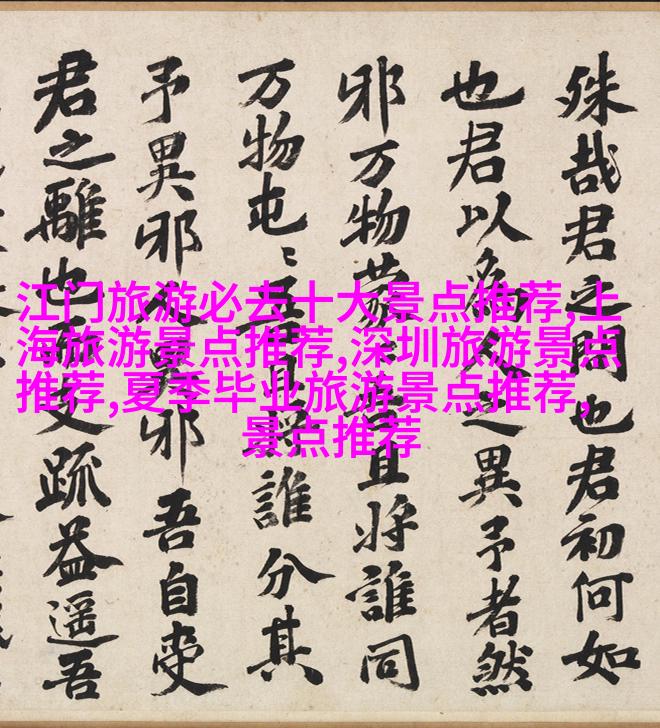 殊哉君之問也君初何如
也君以為人之異予者然
邪万物蒙且將誰同
万物屯〻吾且將誰分其
予異邪人異邪吾自变
君之離也又疏益遥吾
江门旅游必去十大景点推荐,上
海旅游景点推荐,深圳旅游景点
推荐,夏季毕业旅游景点推荐,
景点推荐